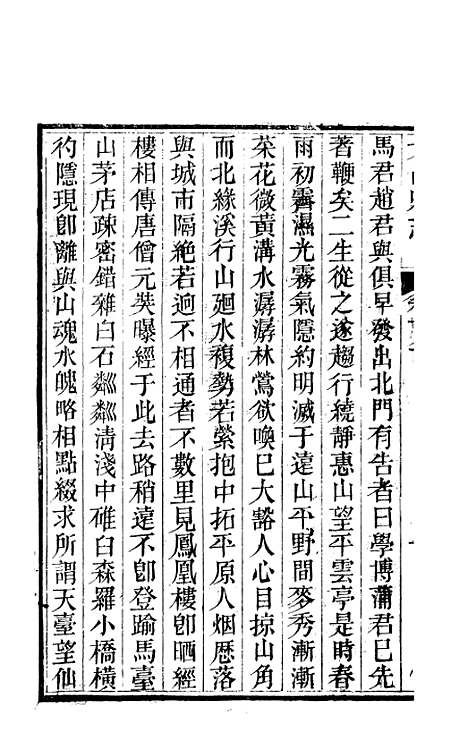 馬君趙君與俱早發出北門有告者曰學博蒲君已先
著鞭矣二生從之遂趨行繞靜惠山望平雲亭是時春
雨初霽濕光霧氣隱約明滅于遠山平野間麥秀漸漸
菜花微黃溝水潺潺林鶯欲喚已大豁人心目掠山角
而北緣溪行山廻水複勢若縈抱中拓平原人烟歷落
與城市隔絶若逈不相通者不數里見鳳凰樓卽晒經
樓相傳唐僧元奘曝經于此去路稍遠不卽登踰馬臺
山茅店疎密錯雜白石粼粼清淺中碓臼森羅小橋橫
彴隱現卽離與山魂水魄略相點綴求所謂天臺望仙